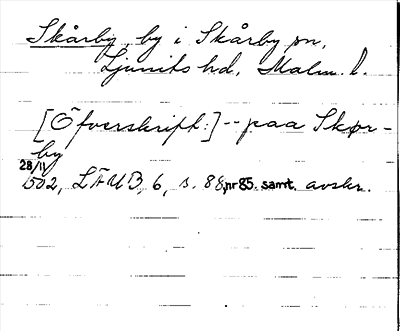 Skårby, by i Skårby sn,
Ljunits hd, Malm. l.
[Öfverskrift:] -- paa Skør-
by
28/IV
1502, LÄUB, 6, s. 88, nr 85. samt. avskr.